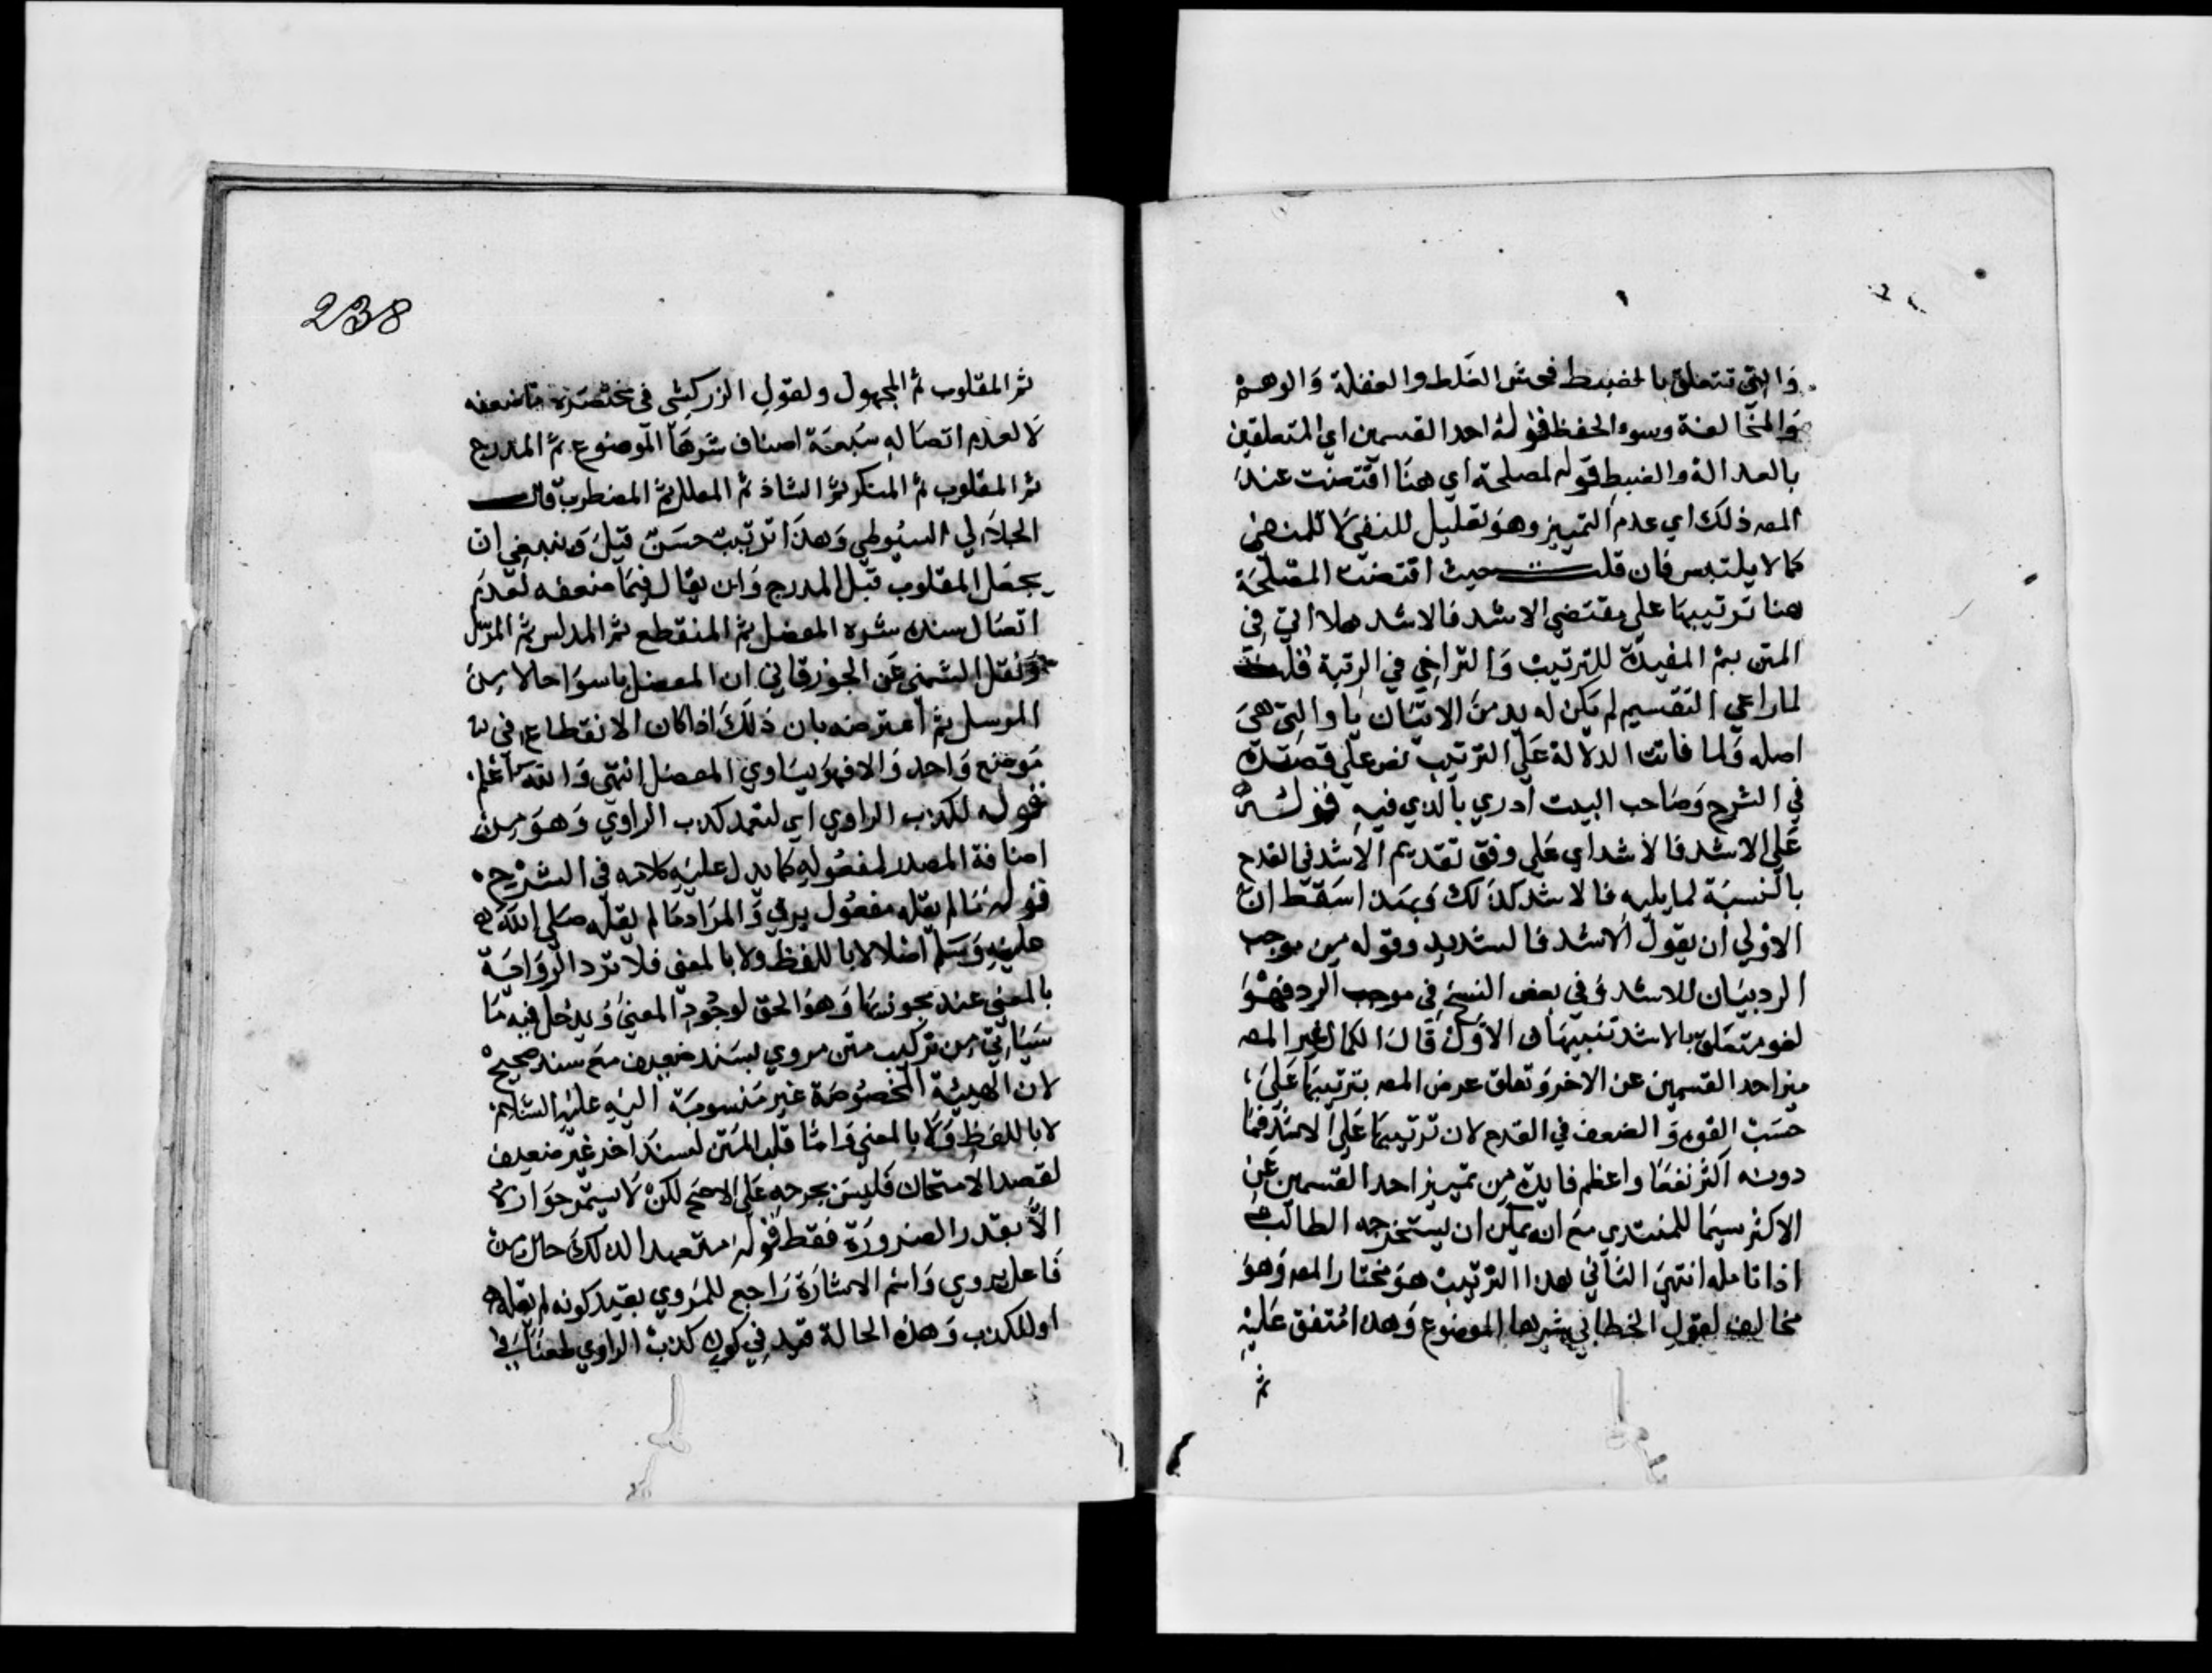 والتي تتعلق بالضبط فحش الغلط والغفلة والوهم
والمخالفة وسوء الحفظ قوله احد القسمين اي المتعلقين
بالعدالة والضبط قوله لمصلحة اي هنا اقتضت عند
المصـ ذلك اي عدم التمييز وهو تعليل للنفي لا للمنفي
كما لا يلتبس فان قلت حيث اقتضت المصلحة
هنا ترتيبها على مقتضى الاشد فالاشد هلا اتي في
المتن بثم المفيدة للترتيب والتراخي في الرتبة قلت
لما راعي التقسيم لم يكن له بد من الاتيان باو التي هي
اصله ولما فاتت الدلالة على الترتيب نص علي قصده
في الشرح وصاحب البيت ادري بالذي فيه قوله
على الاشد فالاشد اي على وفق تقديم الاشد في القدح
بالنسبة لما يليه فالاشد كذلك وبهذا اسقط ان
الاولي ان يقول الاشد فالشديد وقوله من موجب
الرد بيان للاشد وفي بعض النسخ في موجب الرد فهو
لغو متعلق بالاشد تنبيهان الاول قال الكمال غير المصـ
ميز احد القسمين عن الاخر وتعلق غرض المصـ بترتيبها علي
حسب القوة والضعف في القدح لان ترتيبها على الاشد فما
دونه اكثر نفعا واعظم فايدة من تمييز احد القسمين عن
الاكثر سيما للمبتدي مع انه يمكن ان يستخرجه الطالب
اذا تامله انتهي الثاني هذا الترتيب هو مختار المصـ وهو
مخالف لقول الخطابي شرها الموضوع وهذا متفق عليه
ثم
238
ثم المقلوب ثم المجهول ولقول الزركشي في مختصره ما ضعفه
لا لعدم اتصاله سبعة اصناف شرها الموضوع ثم المدرج
ثم المقلوب ثم المنكر ثم الشاذ ثم المعلل ثم المضطرب قال
الجلال السيوطي وهذا ترتيب حسن قيل وينبغي ان
يجعل المقلوب قبل المدرج وان يقال فيما ضعفه لعدم
اتصال سنده شره المعضل ثم المنقطع ثم المدلس ثم المرسل
ونقل الشمني عن الجوزقاني ان المعضل اسوا حالا من
المرسل ثم اعترضه بان ذلك اذا كان الانقطاع في
موضع واحد والا فهو يساوي المعضل انتهى والله اعلم
قوله لكذب الراوي اي لتعمد كذب الراوي وهو من
اضافة المصدر لمفعوله كما يدل عليه كلامه في الشرح
قوله ما لم يقله مفعول يروي والمراد ما لم يقله صلى الله
عليه وسلم اصلا لا باللفظ ولا بالمعنى فلا ترد الرواية
بالمعنى عند مجوزيها وهو الحق لوجود المعنى ويدخل فيه ما
سياتي من تركيب متن مروي بسند ضعيف مع سند صحيح
لان الهيئة المخصوصة غير منسوبة اليه عليه السلام
لا باللفظ ولا بالمعنى واما قلب المتن لسند اخر غير ضعيف
لقصد الامتحان فليس بجرحه على الاصح لكن لا يستمر جوازه
الا بقدر الضرورة فقط قوله متعمدا لذلك حال من
فاعل يروي واسم الاشارة راجع للمروي بقيد كونه لم يقله
او للكذب وهذه الحالة قيد في كون كذب الراوي طعنا في